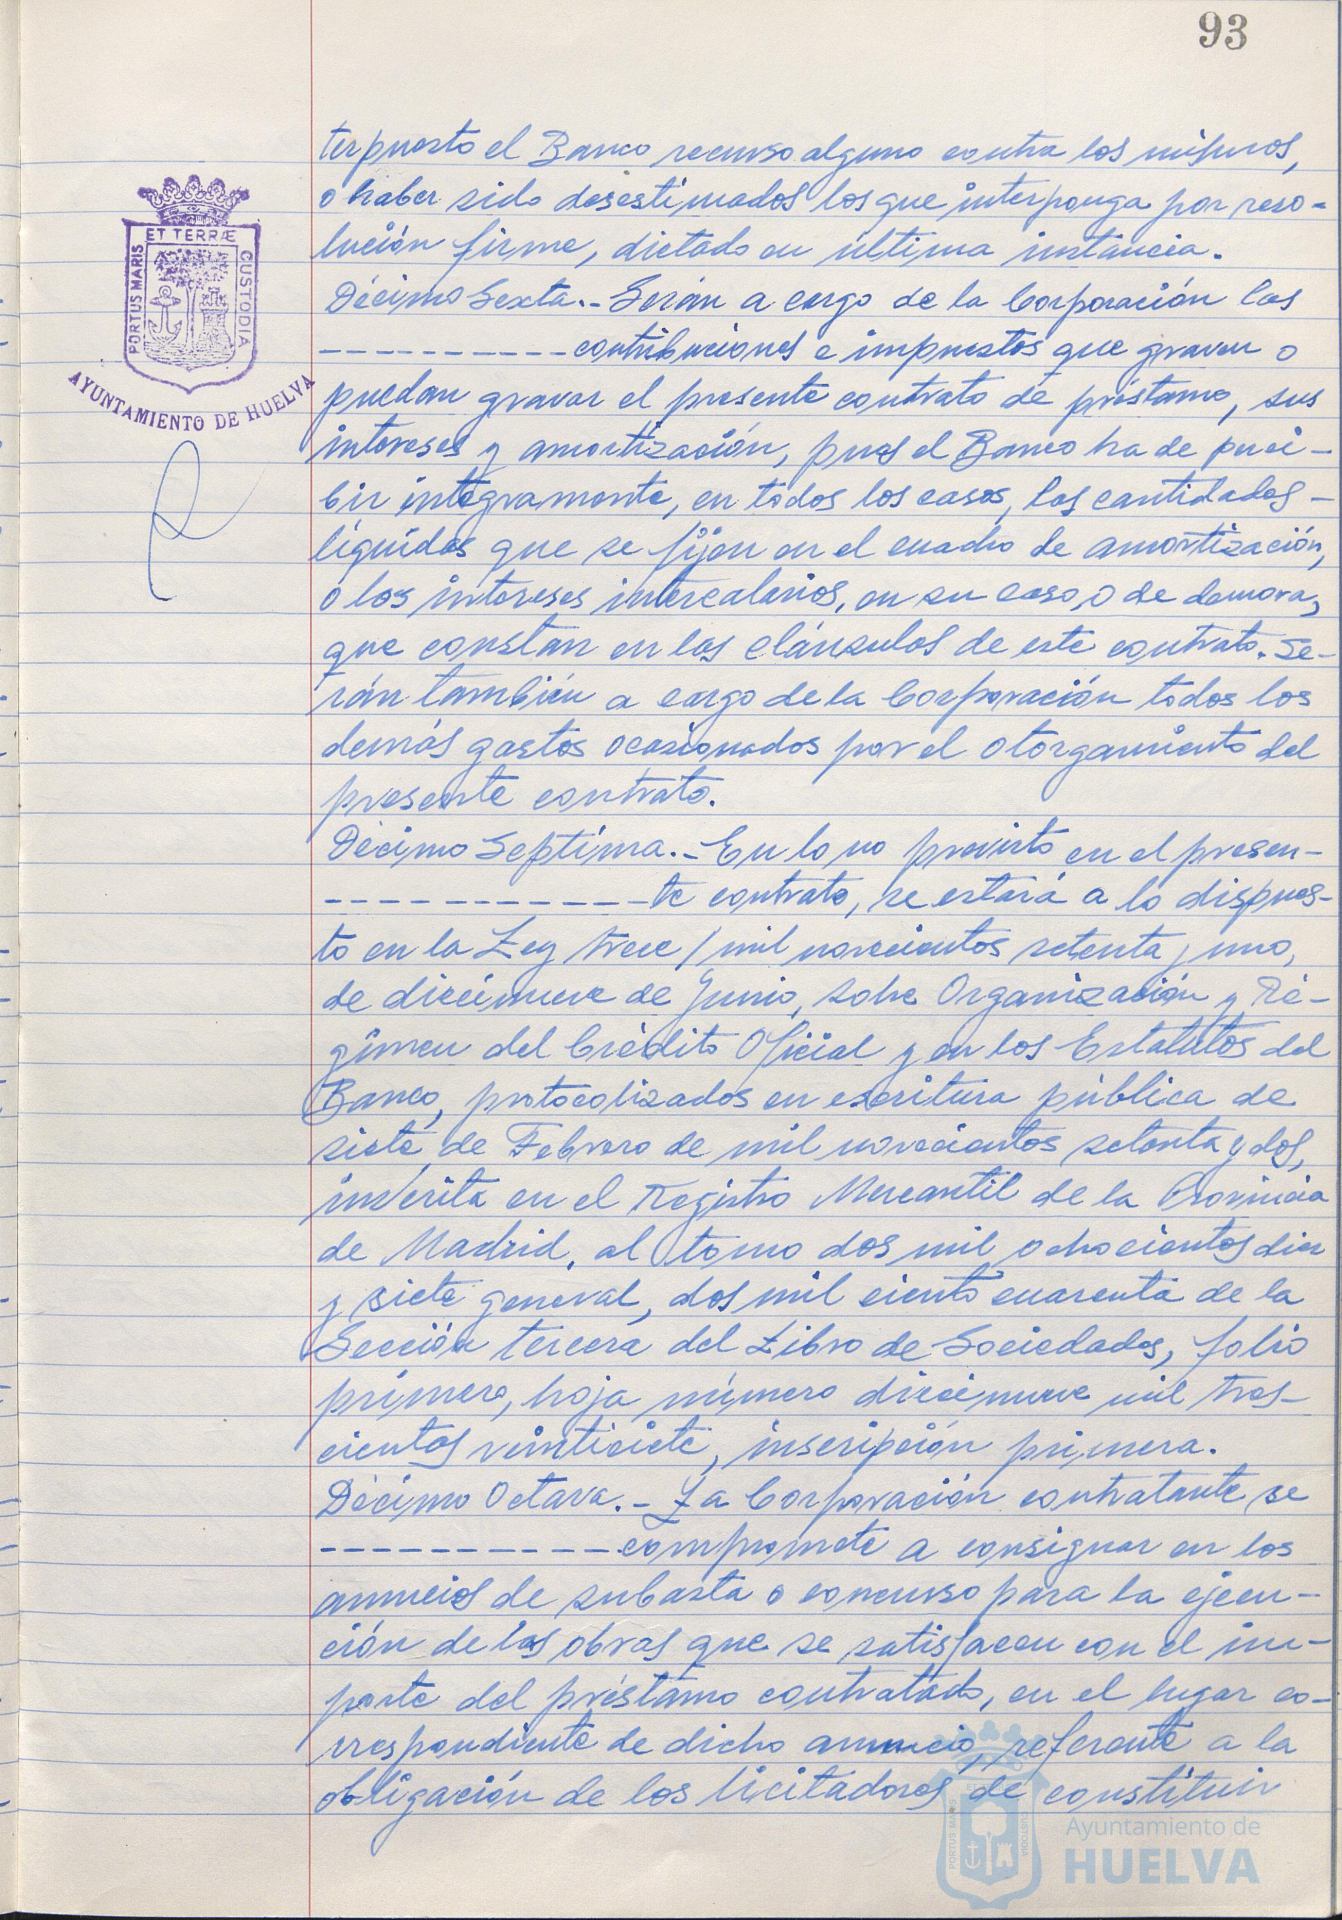 93
terpuesto el Banco recurso alguno contra los mismos,
o haber sido desestimados los que interponga por reso-
lución firme, dictado en última instancia.
Décimo Sexta.- Serán a cargo de la Corporación las
----------contribuciones e impuestos que graven o
puedan gravar el presente contrato de préstamo, sus
intereses y amortización, pues el Banco ha de perci-
bir íntegramente, en todos los casos, las cantidades-
líquidas que se fijen en el cuadro de amortización,
o los intereses intercalarios, en su caso, o de demora,
que constan en las cláusulas de este contrato. Se-
rán también a cargo de la Corporación todos los
demás gastos ocasionados por el otorgamiento del
presente contrato.
Décimo Septima.- En lo no previsto en el presen-
------------te contrato, se estará a lo dispues-
to en la Ley trece/mil novecientos setenta y uno,
de diecinueve de Junio, sobre Organización y Ré-
gimen del Crédito Oficial y en los Estatutos del
Banco, protocolizados en escritura pública de
siete de Febrero de mil novecientos setenta y dos,
inscrita en el Registro Mercantil de la Provincia
de Madrid, al tomo dos mil ochocientos diez
y siete general, dos mil ciento cuarenta de la
Sección tercera del Libro de Sociedades, folio
primero, hoja número diecinueve mil tres-
cientos veintisiete, inscripción primera.
Décimo Octava.- La Corporación contratante se
------------compromete a consignar en los
anuncios de subasta o concurso para la ejecu-
ción de las obras que se satisfacen con el im-
porte del préstamo contratado, en el lugar co-
rrespondiente de dicho anuncio, referente a la
obligación de los licitadores de constituir
PORTUS MARIS
ET TERRÆ
CUSTODIA
AYUNTAMIENTO DE HUELVA
Ayuntamiento de
HUELVA